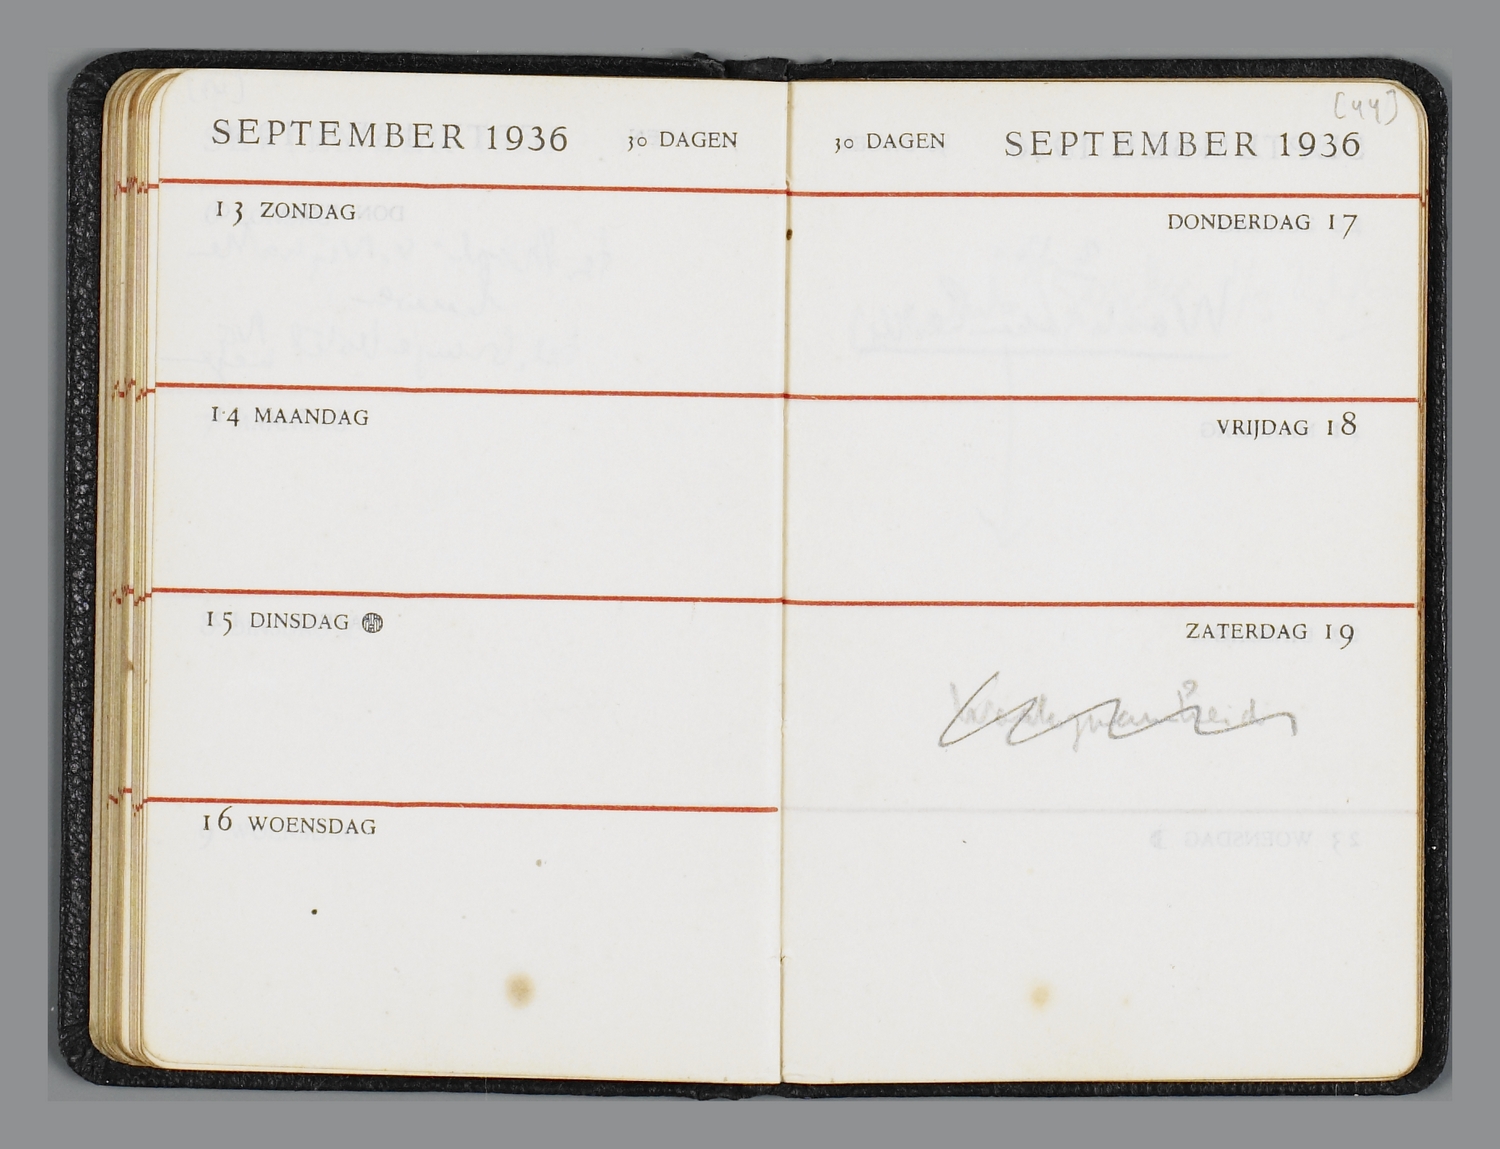 SEPTEMBER 1936 30 DAGEN
13 ZONDAG
14 MAANDAG
15 DINSDAG
16 WOENSDAG
[44]
30 DAGEN SEPTEMBER 1936
DONDERDAG 17
VRIJDAG 18
ZATERDAG 19